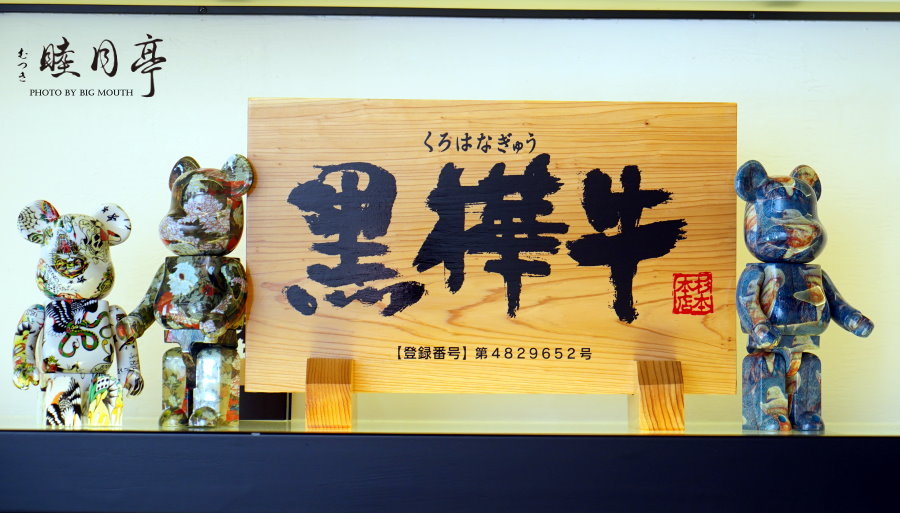 むつき
睦月亭
PHOTO BY BIG MOUTH
くろはなぎゅう
黒樺牛
杉本本店
【登録番号】第4829652号